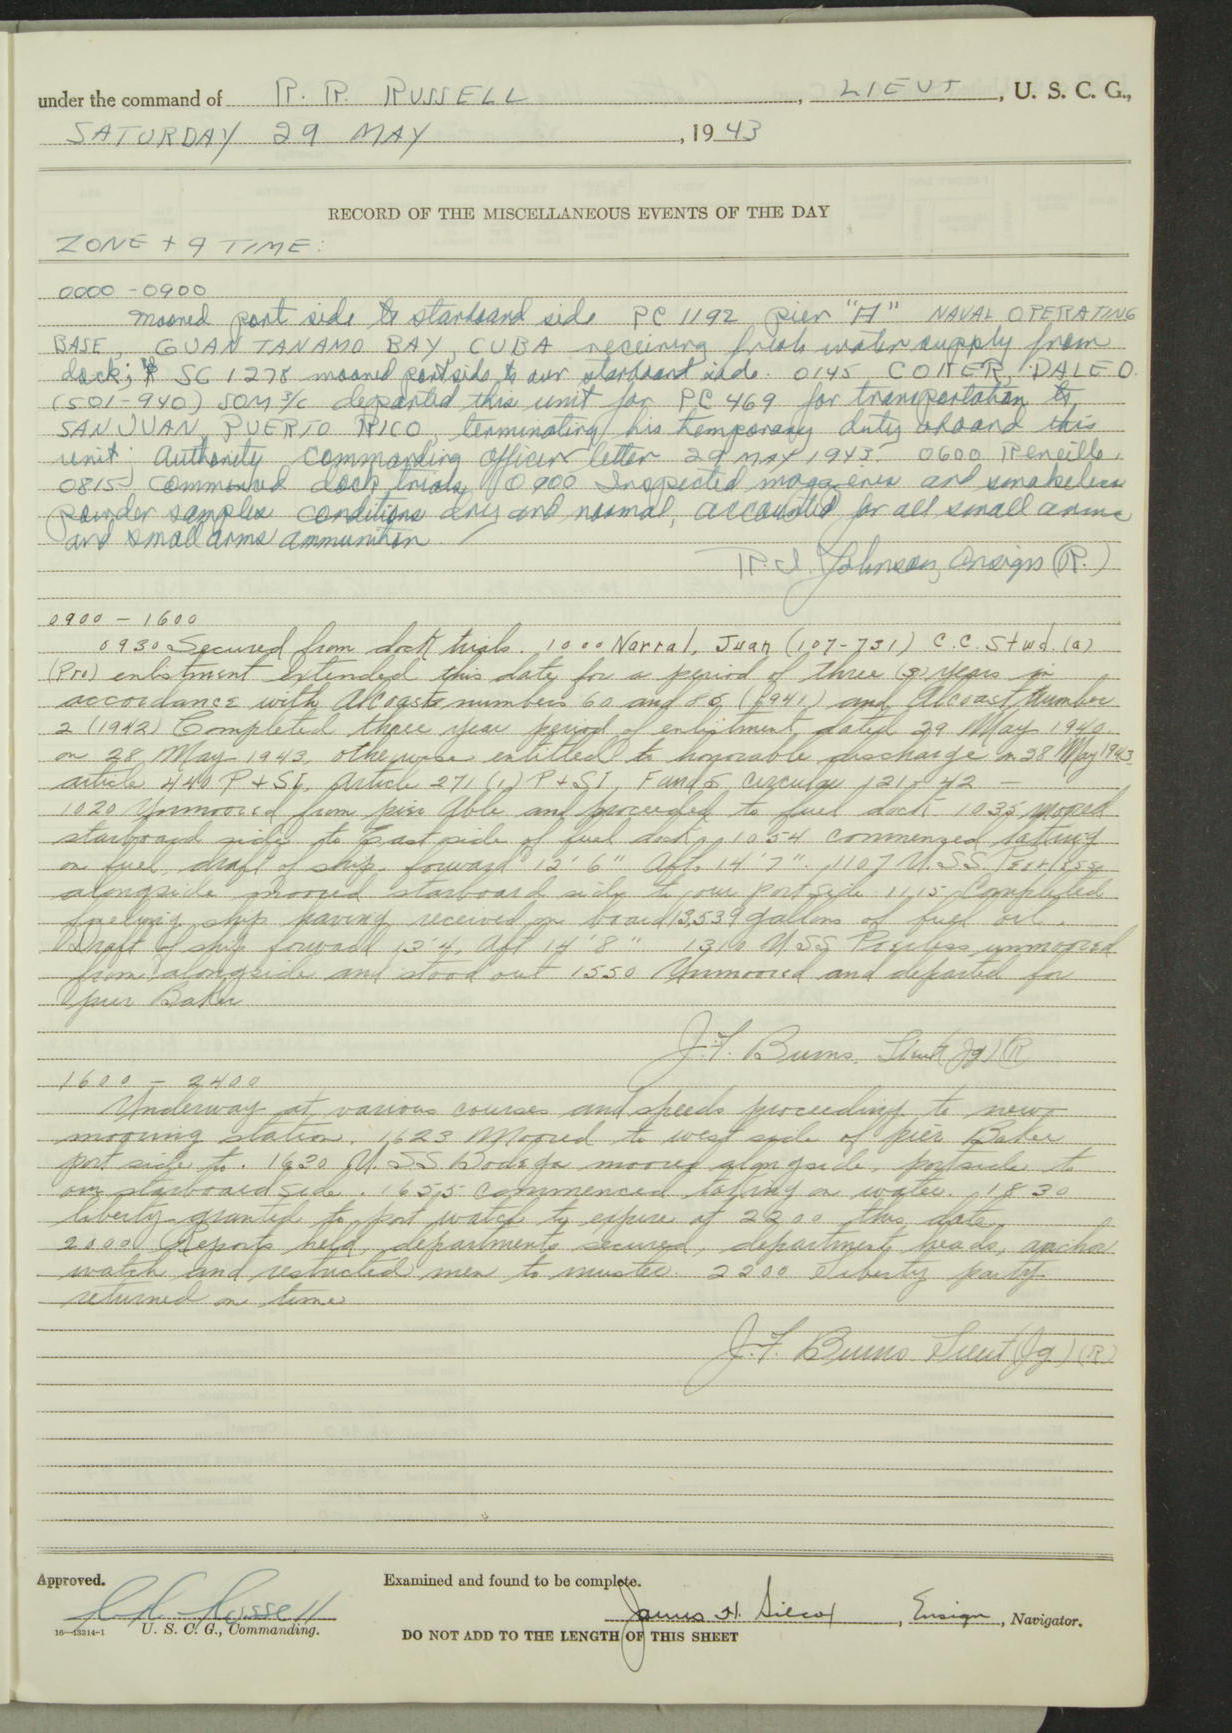 under the command of R. R. RUSSELL, LIEUT, U. S. C. G.,
SATURDAY 29 MAY, 1943
RECORD OF THE MISCELLANEOUS EVENTS OF THE DAY
ZONE + 9 TIME:
0000 - 0900
Moored port side to starboard side PC 1192 pier "H" NAVAL OPERATING
BASE, GUANTANAMO BAY, CUBA receiving fresh water supply from
dock; SC 1278 moored portside to our starboard side. 0145 DALE O.
(501-940) SOM 3/c departed this unit for PC 469 for transportation to
SAN JUAN, PUERTO RICO, terminating his temporary duty aboard this
unit; Authority Commanding Officer letter 29 MAY 1943. 0600 Reveille.
0815 Commenced dock trials, 0900 Inspected magazines and smokeless
powder samples conditions dry and normal, accounted for all small arms
and small arms ammunition.
R. I. Johnson, Ensign (R.)
0900 - 1600
0930 Secured from dock trials. 1000 Narral, Juan (107-731) C.C. Stwd. (a)
(Pro) enlistment extended this date for a period of three (3) years in
accordance with Alcoasts numbers 60 and (1941) and Alcoast Number
2 (1942) Completed three year period of enlistment, dated 29 May 1940
on 28 May 1943, otherwise entitled to honorable discharge on 28 May 1943
article 440 P + SI, Article 271 (1) P + SI, circular 121-42 -
1020 Unmoored from pier Able and proceeded to fuel dock 1035 moored
starboard side to East side of fuel dock, 1054 commenced taking
on fuel, draft of ship forward 12' 6" Aft. 14' 7". 1107 U.SS Peerless
alongside moored starboard side to our port side 1115 Completed
fueling ship having received on board 13,539 gallons of fuel oil.
Draft of ship forward 13' 4, Aft 14' 8" 1310 U SS Peerless unmoored
from alongside and stood out 1550 Unmoored and departed for
pier Baker
J.F. Burns. Lieut (Jg) (R)
1600 - 2400
Underway at various courses and speeds proceeding to new
mooring station. 1623 Moored to west side of pier Baker
port side to. 1630 U. SS Bodega moored alongside, portside to
our starboard side. 1655 commenced taking on water. 1830
liberty granted to port watch to expire at 2200 this date
2000 Reports held, departments secured, department heads, anchor
watch and restricted men to muster. 2200 Liberty party
returned on time
J.F. Burns Lieut (Jg) (R)
Approved.
Examined and found to be complete.
R R Russell
James H. Silcox, Ensign, Navigator.
16-13314-1 U. S. C. G., Commanding.
DO NOT ADD TO THE LENGTH OF THIS SHEET